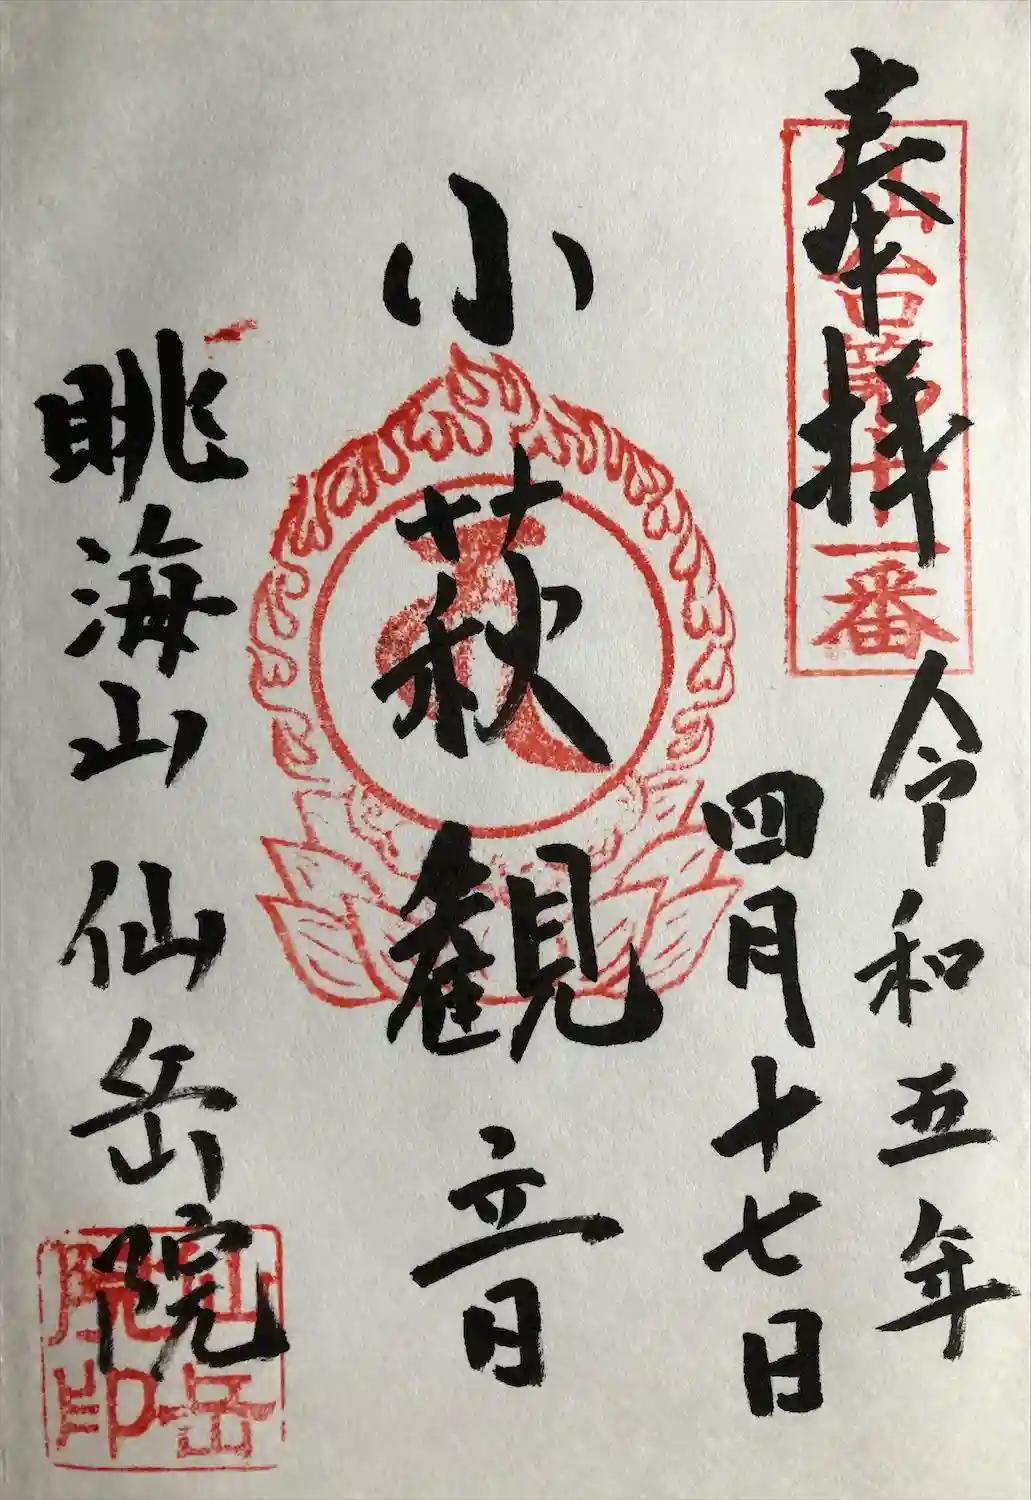 奉拝
仙台第十一番
令和五年
四月十七日
小萩観音
眺海山 仙岳院
仙岳院印